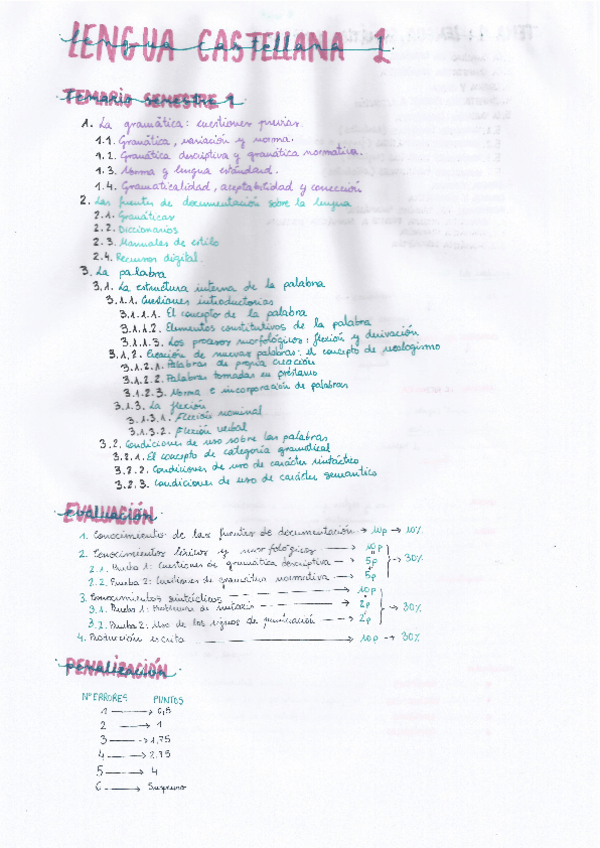 LENGUA CASTELLANA 1
Temario semestre 1
1. La gramática: cuestiones previas.
1.1. Gramática, variación y norma.
1.2. Gramática descriptiva y gramática normativa.
1.3. Norma y lengua estándard.
1.4. Gramaticalidad, aceptabilidad y corrección
2. Las fuentes de documentación sobre la lengua
2.1. Gramáticas
2.2. Diccionarios
2.3. Manuales de estilo
2.4. Recursos digital.
3. La palabra
3.1. La estructura interna de la palabra
3.1.1. Cuestiones introductorias
3.1.1.1. El concepto de la palabra
3.1.1.2. Elementos constitutivos de la palabra
3.1.1.3. Los procesos morfológicos: flexión y derivación
3.1.2. Creación de nuevas palabras: el concepto de neologismo
3.1.2.1. Palabras de propia creación
3.1.2.2. Palabras tomadas en préstamo
3.1.2.3. Norma e incorporación de palabras
3.1.3. La flexión
3.1.3.1. Flexión nominal
3.1.3.2. Flexión verbal
3.2. Condiciones de uso sobre las palabras
3.2.1. El concepto de categoría gramatical
3.2.2. Condiciones de uso de carácter sintáctico
3.2.3. Condiciones de uso de carácter semántico
EVALUACIÓN
1. Conocimiento de las fuentes de documentación → 10p → 10%
2. Conocimientos léxicos y morfológicos → 10p → 30%
2.1. Prueba 1: Cuestiones de gramática descriptiva → 5p
2.2. Prueba 2: Cuestiones de gramática normativa → 5p
3. Conocimientos sintácticos → 10p → 30%
3.1. Prueba 1: Problemas de sintaxis → 2p
3.2. Prueba 2: Uso de los signos de puntuación → 2p
4. Producción escrita → 10p → 30%
PENALIZACIÓN
Nº ERRORES PUNTOS
1 → 0,5
2 → 1
3 → 1,75
4 → 2,75
5 → 4
6 → Suspenso